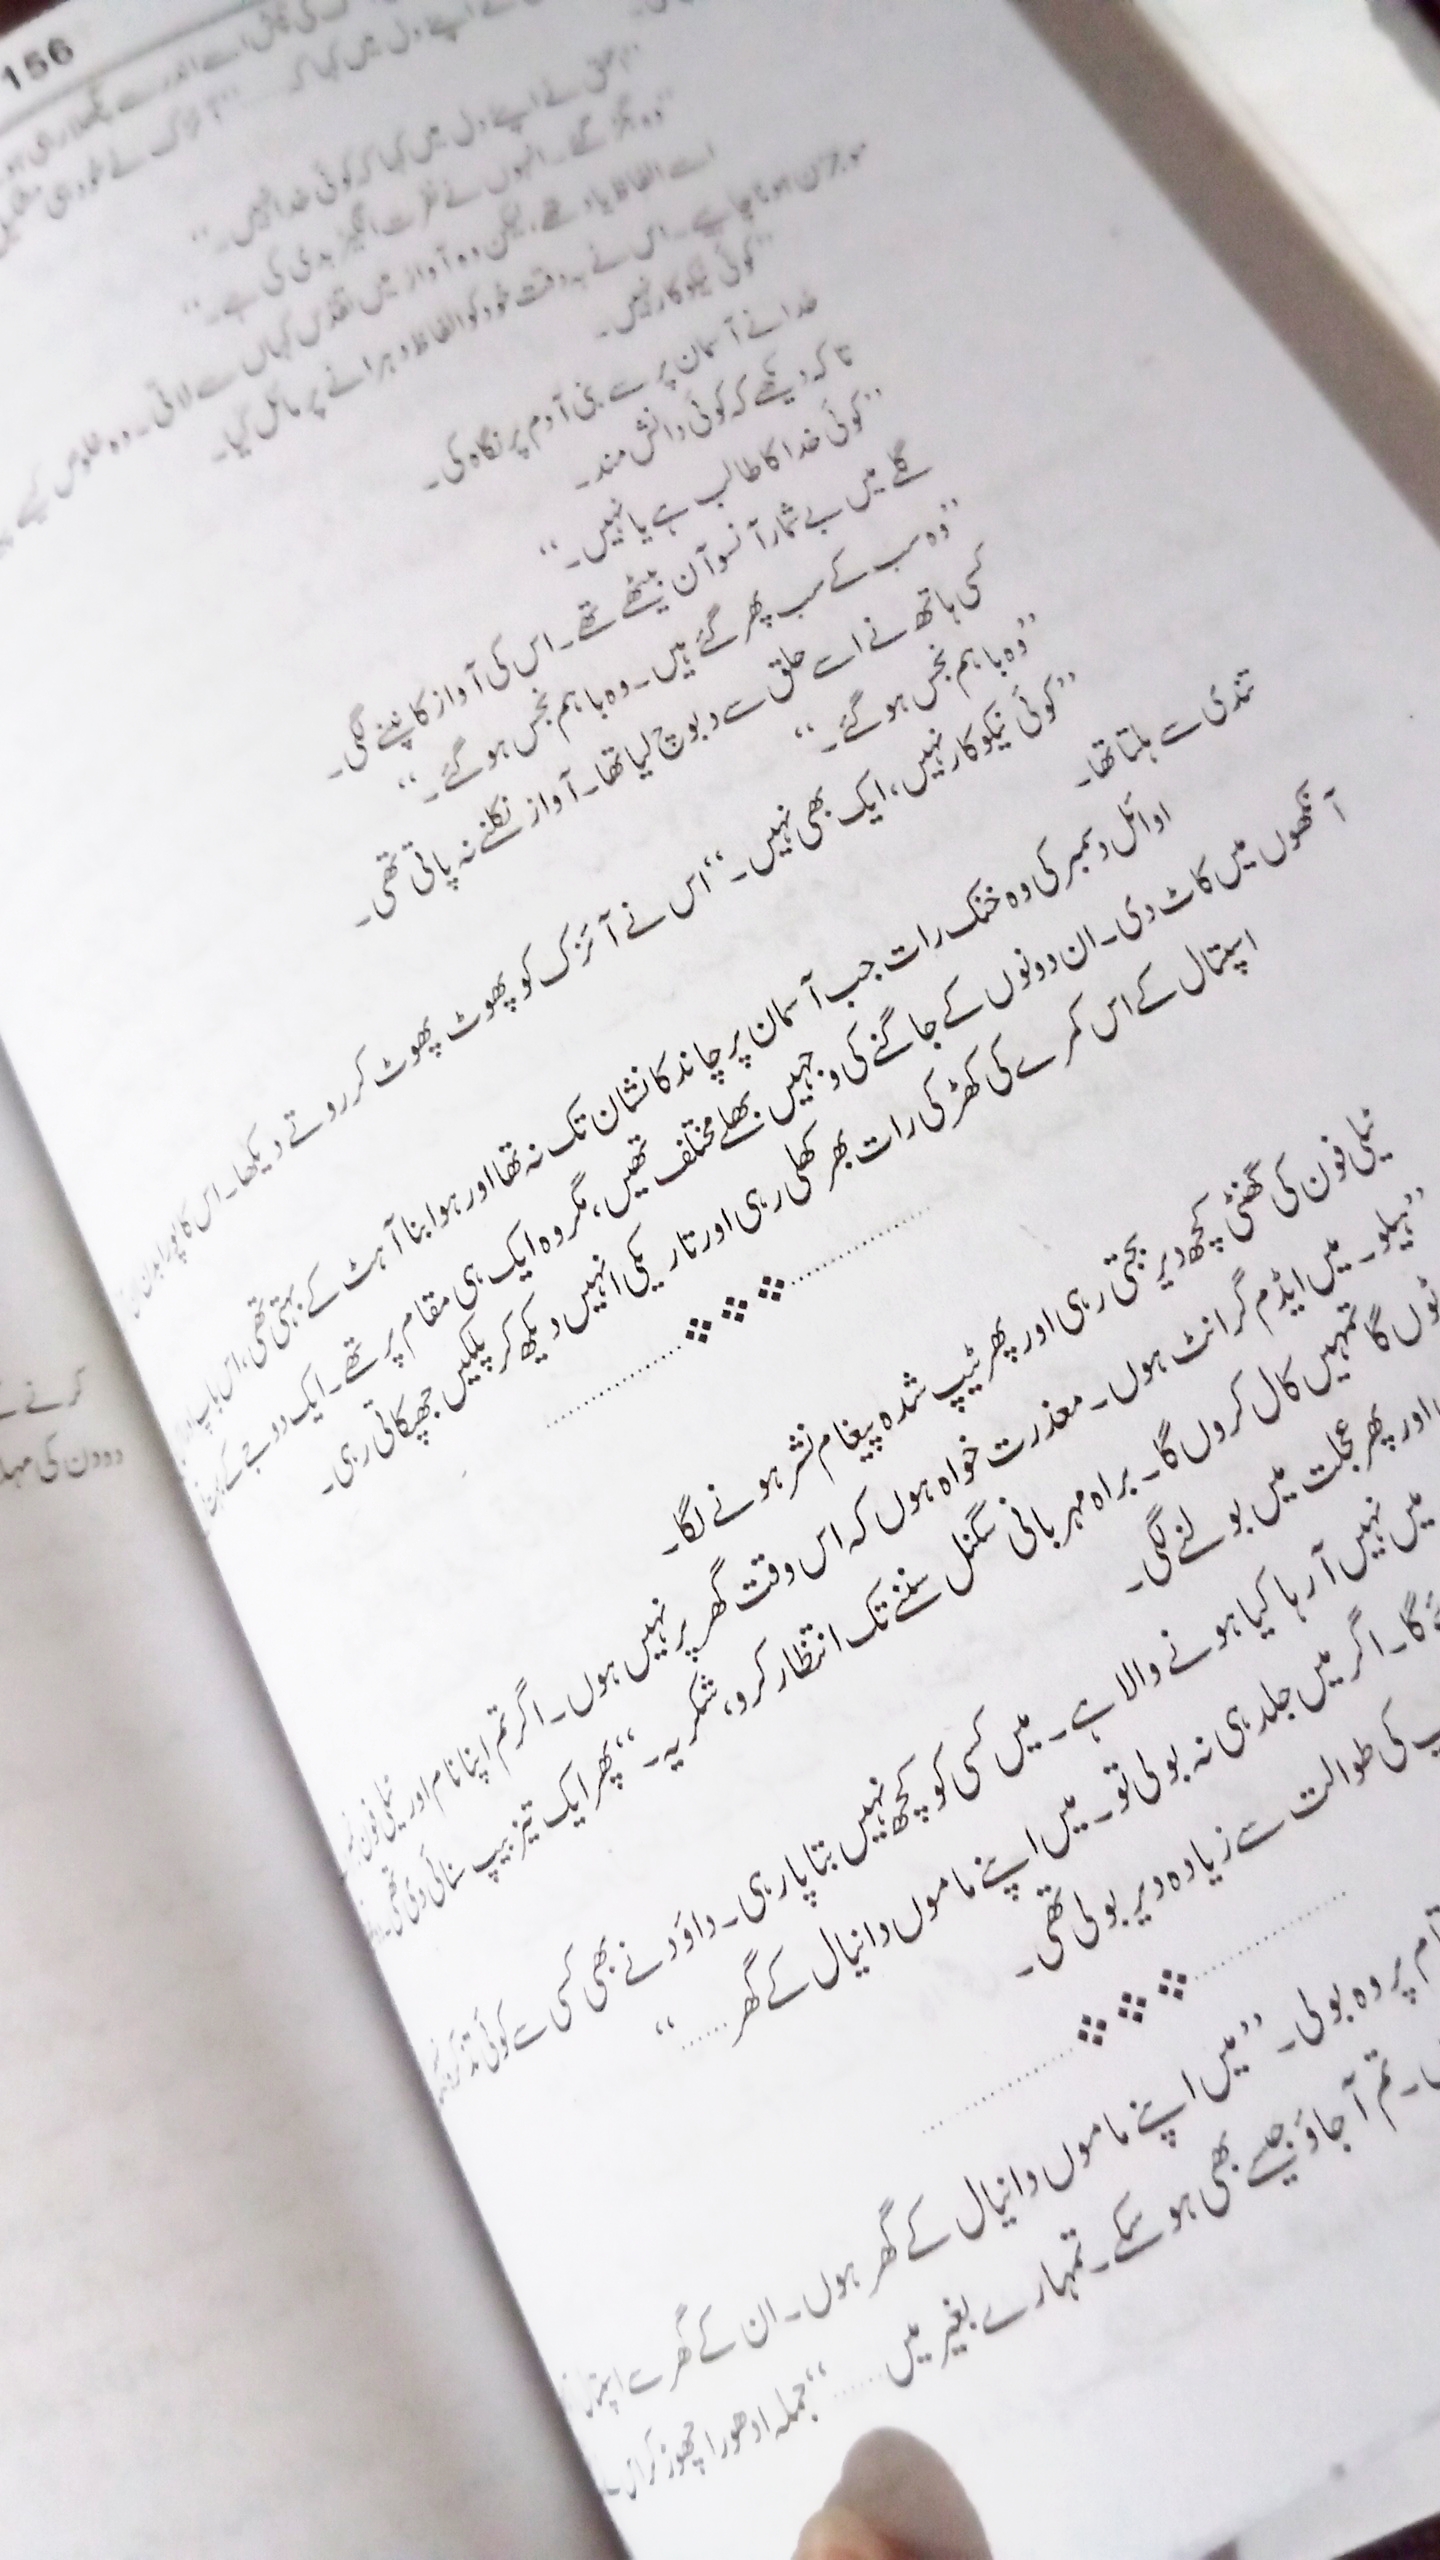 156
"احمق نے اپنے دل میں کہا کہ کوئی خدا نہیں۔"
"وہ بگڑ گئے۔ انہوں نے نفرت انگیز بدی کی ہے۔"
اسے الفاظ یاد تھے، لیکن وہ آواز میں تقدس کہاں سے لاتی۔ وہ خلوص کیسے
موجزن ہونا چاہیے۔ اس نے بہ دقت خود کو الفاظ دہرانے پر مائل کیا۔
"کوئی نیکوکار نہیں۔
خدا نے آسمان پر سے بنی آدم پر نگاہ کی۔
تاکہ دیکھے کہ کوئی دانش مند۔
"کوئی خدا کا طالب ہے یا نہیں۔"
گلے میں بے شمار آنسو آن بیٹھے تھے۔ اس کی آواز کانپنے لگی۔
"وہ سب کے سب پھر گئے ہیں۔ وہ باہم نجس ہو گئے۔"
کسی ہاتھ نے اسے حلق سے دبوچ لیا تھا۔ آواز نکلنے نہ پاتی تھی۔
"وہ باہم نجس ہو گئے۔"
"کوئی نیکوکار نہیں، ایک بھی نہیں۔" اس نے آئزک کو پھوٹ پھوٹ کر روتے دیکھا۔ اس کا پورا بدن
تندی سے ہلتا تھا۔
اوائل دسمبر کی وہ خنک رات جب آسمان پر چاند کا نشان تک نہ تھا اور ہوا بنا آہٹ کے بہتی تھی، اس باپ
آنکھوں میں کاٹ دی۔ ان دونوں کے جاگنے کی وجہیں بھلے مختلف تھیں، مگر وہ ایک ہی مقام پر تھے۔ ایک دوجے کے
اسپتال کے اس کمرے کی کھڑکی رات بھر کھلی رہی اور تاریکی انہیں دیکھ کر پلکیں جھپکاتی رہی۔
ٹیلی فون کی گھنٹی کچھ دیر بجتی رہی اور پھر ٹیپ شدہ پیغام نشر ہونے لگا۔
"ہیلو۔ میں ایڈم گرانٹ ہوں۔ معذرت خواہ ہوں کہ اس وقت گھر پر نہیں ہوں۔ اگر تم اپنا نام اور ٹیلی فون
تمہیں کال کروں گا۔ براہ مہربانی سگنل سننے تک انتظار کرو، شکریہ۔" پھر ایک تیز بیپ سنائی دی تھی۔
اور پھر عجلت میں بولنے لگی۔
میں نہیں آ رہا کیا ہونے والا ہے۔ میں کسی کو کچھ نہیں بتا پا رہی۔ داؤد نے بھی کسی سے کوئی تذکرہ
گا۔ اگر میں جلد ہی نہ بولی تو۔ میں اپنے ماموں دانیال کے گھر......"
کی طوالت سے زیادہ دیر بولی تھی۔
پر وہ بولی۔ "میں اپنے ماموں دانیال کے گھر ہوں۔ ان کے گھر سے اسپتال
تم آ جاؤ جیسے بھی ہو سکے۔ تمہارے بغیر میں......" جملہ ادھورا چھوڑ کر اس
کرنے
دو دن کی